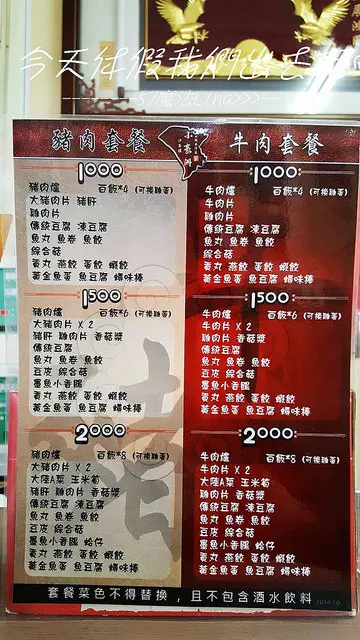 今天休假我們出去
57魔法Ling>>>
豬肉套餐
牛肉套餐
1000
豬肉爐 白飯*4 (可換雞蛋)
大豬肉片 豬肝
雞肉片
傳統豆腐 凍豆腐
魚丸 魚卷 魚餃
綜合菇
貢丸 燕餃 蛋餃 蝦餃
黃金魚蛋 魚豆腐 蟳味棒
1000
牛肉爐 白飯*4 (可換雞蛋)
牛肉片
雞肉片
傳統豆腐 凍豆腐
魚丸 魚卷 魚餃
綜合菇
貢丸 燕餃 蛋餃 蝦餃
黃金魚蛋 魚豆腐 蟳味棒
1500
豬肉爐 白飯*6 (可換雞蛋)
大豬肉片 X 2
豬肝 雞肉片 香菇漿
傳統豆腐
魚丸 魚卷 魚餃
豆皮 綜合菇
墨魚小香腸
貢丸 燕餃 蛋餃 蝦餃
黃金魚蛋 魚豆腐 蟳味棒
1500
牛肉爐 白飯*6 (可換雞蛋)
牛肉片 X 2
雞肉片 香菇漿
傳統豆腐
魚丸 魚卷 魚餃
豆皮 綜合菇
墨魚小香腸
貢丸 燕餃 蛋餃 蝦餃
黃金魚蛋 魚豆腐 蟳味棒
2000
豬肉爐 白飯*8 (可換雞蛋)
大豬肉片 X 2
大陸A菜 玉米筍
豬肝 雞肉片 香菇漿
傳統豆腐 凍豆腐
魚丸 魚卷 魚餃
豆皮 綜合菇
墨魚小香腸 蛤仔
貢丸 燕餃 蛋餃 蝦餃
黃金魚蛋 魚豆腐 蟳味棒
2000
牛肉爐 白飯*8 (可換雞蛋)
牛肉片 X 2
大陸A菜 玉米筍
雞肉片 香菇漿
傳統豆腐 凍豆腐
魚丸 魚卷 魚餃
豆皮 綜合菇
墨魚小香腸 蛤仔
貢丸 燕餃 蛋餃 蝦餃
黃金魚蛋 魚豆腐 蟳味棒
套餐菜色不得替換，且不包含酒水飲料
2016.10